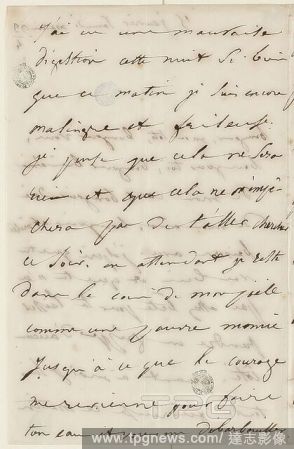 J'ai eu une mauvaise
digestion cette nuit si bien
que ce matin je suis encore
malingre et frileuse.
je pense que cela ne sera
rien et que cela ne m'empê
chera pas de t'aller chercher
ce soir. en attendant je reste
dans le coin de mon poële
comme une pauvre momie
jusqu'à ce que le courage
me revienne pour faire
ton eau et me débarbouiller
TPG
www.tpgnews.com/達志影像